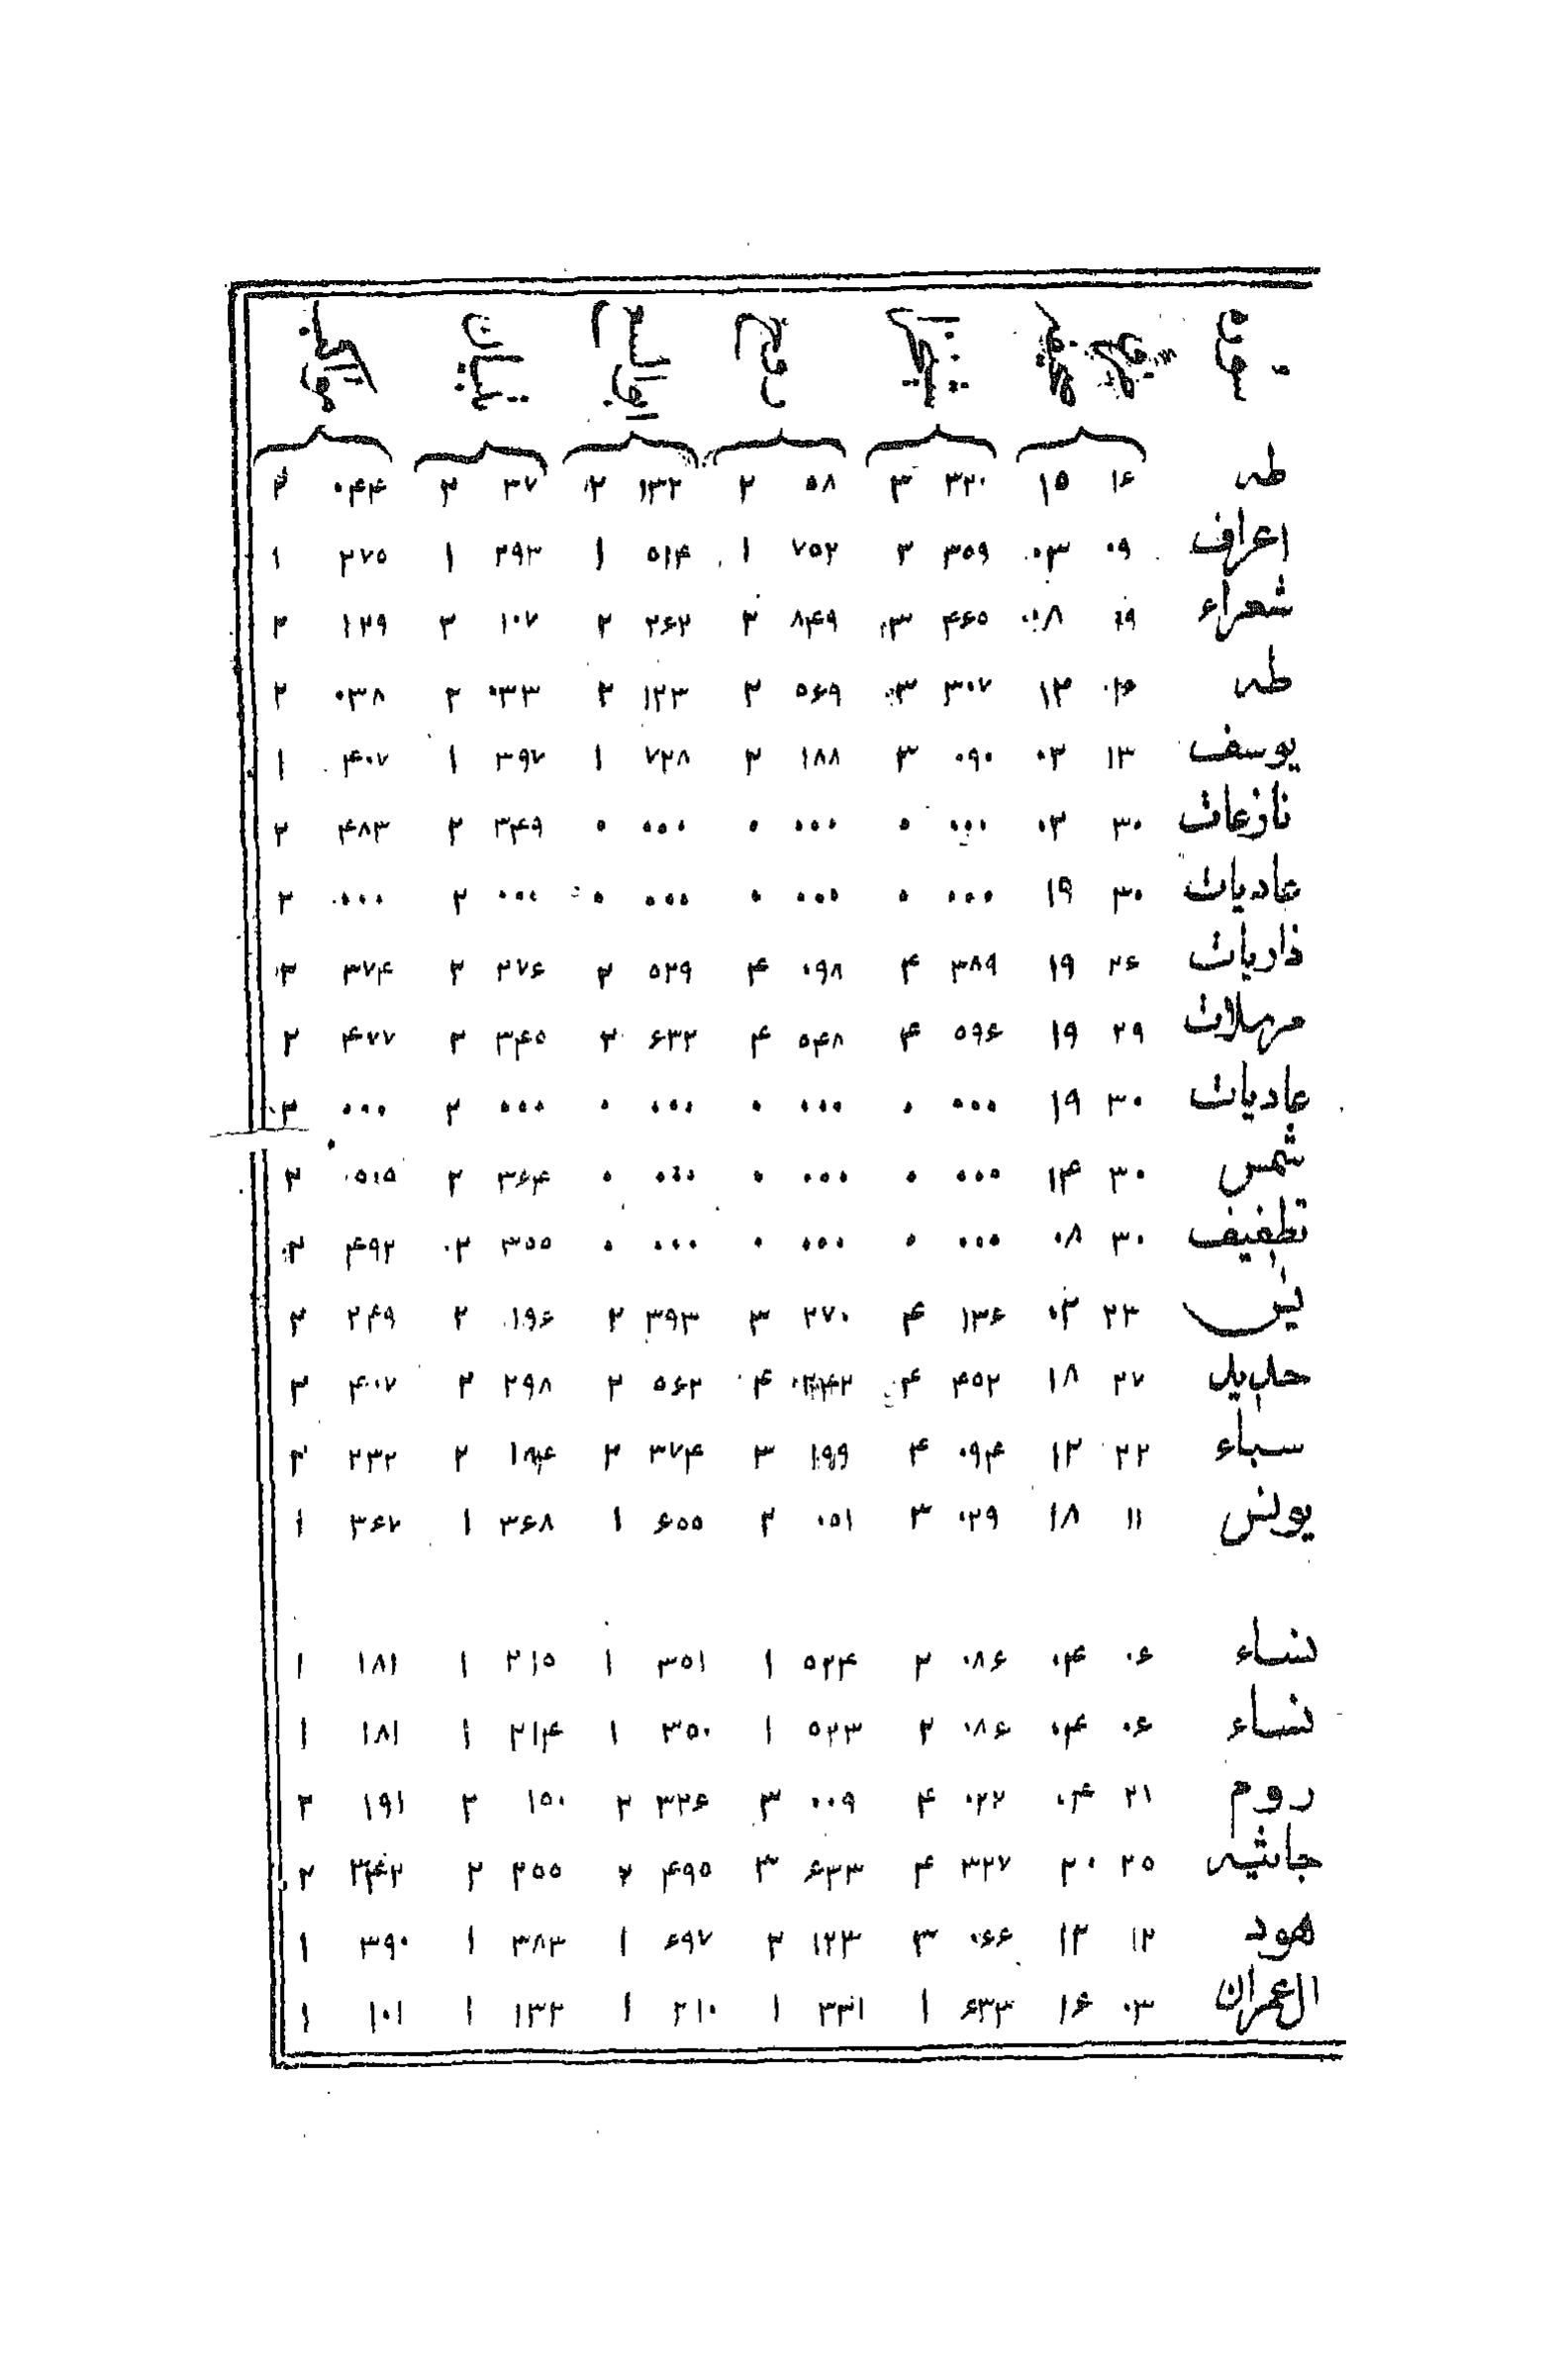 سورة
طه ۱۶ ۱۵ ۳۲۰ ۳ ۵۸ ۲ ۱۳۲ ۲ ۳۷ ۲ ۰۴۴ ۲
اعراف ۰۹ ۰۳ ۳۵۹ ۲ ۷۵۲ ۱ ۵۱۴ ۱ ۲۹۳ ۱ ۲۷۵ ۱
شعراء ۱۹ ۰۸ ۴۶۵ ۳ ۸۴۹ ۲ ۲۶۲ ۲ ۱۰۷ ۲ ۱۲۹ ۲
طه ۱۲ ۳۰۷ ۳ ۵۶۹ ۲ ۱۲۳ ۲ ۰۳۳ ۲ ۰۳۸ ۲
یوسف ۱۳ ۰۲ ۰۹۰ ۳ ۱۸۸ ۲ ۷۲۸ ۱ ۳۹۷ ۱ ۴۰۷ ۱
نازعات ۳۰ ۰۲ ۰۰۰ ۰ ۰۰۰ ۰ ۰۰۰ ۰ ۳۴۹ ۲ ۴۸۳ ۲
عادیات ۳۰ ۱۹ ۰۰۰ ۰ ۰۰۰ ۰ ۰۰۰ ۰ ۰۰۰ ۲ ۰۰۰ ۲
ذاریات ۲۶ ۱۹ ۳۸۹ ۴ ۰۹۸ ۴ ۵۲۹ ۲ ۲۷۶ ۲ ۳۷۴ ۲
مرسلات ۲۹ ۱۹ ۵۹۶ ۴ ۵۴۸ ۴ ۶۳۲ ۲ ۳۴۵ ۲ ۴۷۷ ۲
عادیات ۳۰ ۱۹ ۰۰۰ ۰ ۰۰۰ ۰ ۰۰۰ ۰ ۰۰۰ ۲ ۰۰۰ ۲
شمس ۳۰ ۱۴ ۰۰۰ ۰ ۰۰۰ ۰ ۰۰۰ ۰ ۳۶۴ ۲ ۵۱۵ ۲
تطفیف ۳۰ ۰۸ ۰۰۰ ۰ ۰۰۰ ۰ ۰۰۰ ۰ ۳۵۵ ۲ ۴۹۲ ۲
یس ۲۳ ۰۲ ۱۳۶ ۴ ۲۷۰ ۳ ۳۹۳ ۲ ۱۹۶ ۲ ۲۴۹ ۲
حدید ۲۷ ۱۸ ۴۵۲ ۴ ۴ ۵۶۲ ۲ ۲۹۸ ۲ ۴۰۷ ۲
سباء ۲۲ ۱۲ ۰۹۴ ۴ ۱۹۹ ۳ ۳۷۴ ۲ ۲ ۲۳۲ ۲
یونس ۱۱ ۱۸ ۰۲۹ ۳ ۰۵۱ ۲ ۶۵۵ ۱ ۳۶۸ ۱ ۳۶۷ ۱
نساء ۰۶ ۰۴ ۰۸۶ ۲ ۵۲۴ ۱ ۳۵۱ ۱ ۲۱۵ ۱ ۱۸۱ ۱
نساء ۰۶ ۰۴ ۰۸۶ ۲ ۵۲۳ ۱ ۳۵۰ ۱ ۲۱۴ ۱ ۱۸۱ ۱
روم ۲۱ ۰۴ ۰۲۲ ۴ ۰۰۹ ۳ ۳۲۶ ۲ ۱۵۰ ۲ ۱۹۱ ۲
جاثیه ۲۵ ۲۰ ۳۲۷ ۴ ۶۳۳ ۳ ۴۹۵ ۲ ۲۵۵ ۲ ۳۴۲ ۲
هود ۱۲ ۱۲ ۰۶۶ ۳ ۱۲۳ ۲ ۶۹۷ ۱ ۳۸۳ ۱ ۳۹۰ ۱
ال عمران ۰۳ ۱۶ ۶۳۳ ۱ ۳۳۱ ۱ ۲۱۰ ۱ ۱۳۲ ۱ ۱۰۱ ۱